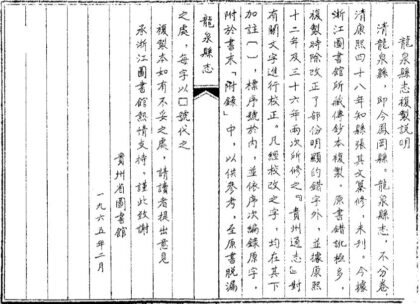 龙泉縣志複製説明
清龙泉縣，即今鳳岡縣。龙泉縣志，不分卷，
清康熙四十八年知縣張其文纂修，未刊。今據
浙江圖書館所藏傳鈔本複製。原書錯訛極多，
複製時除改正了部份明顯的錯字外，並據康熙
十二年及三十六年兩次所修之『貴州通志』對
有關文字進行校正。凡經校改之字，均在其下
加註〔〕，標序號於內，並依序次編錄原字，
附於書末『附錄』中，以供參考，至原書脫漏
龍泉縣志
之處，每字以囗號代之
複製本如有不妥之處，請讀者提出意見
承浙江圖書館熱情支持。謹此致謝
貴州省圖書館
一九六五年二月